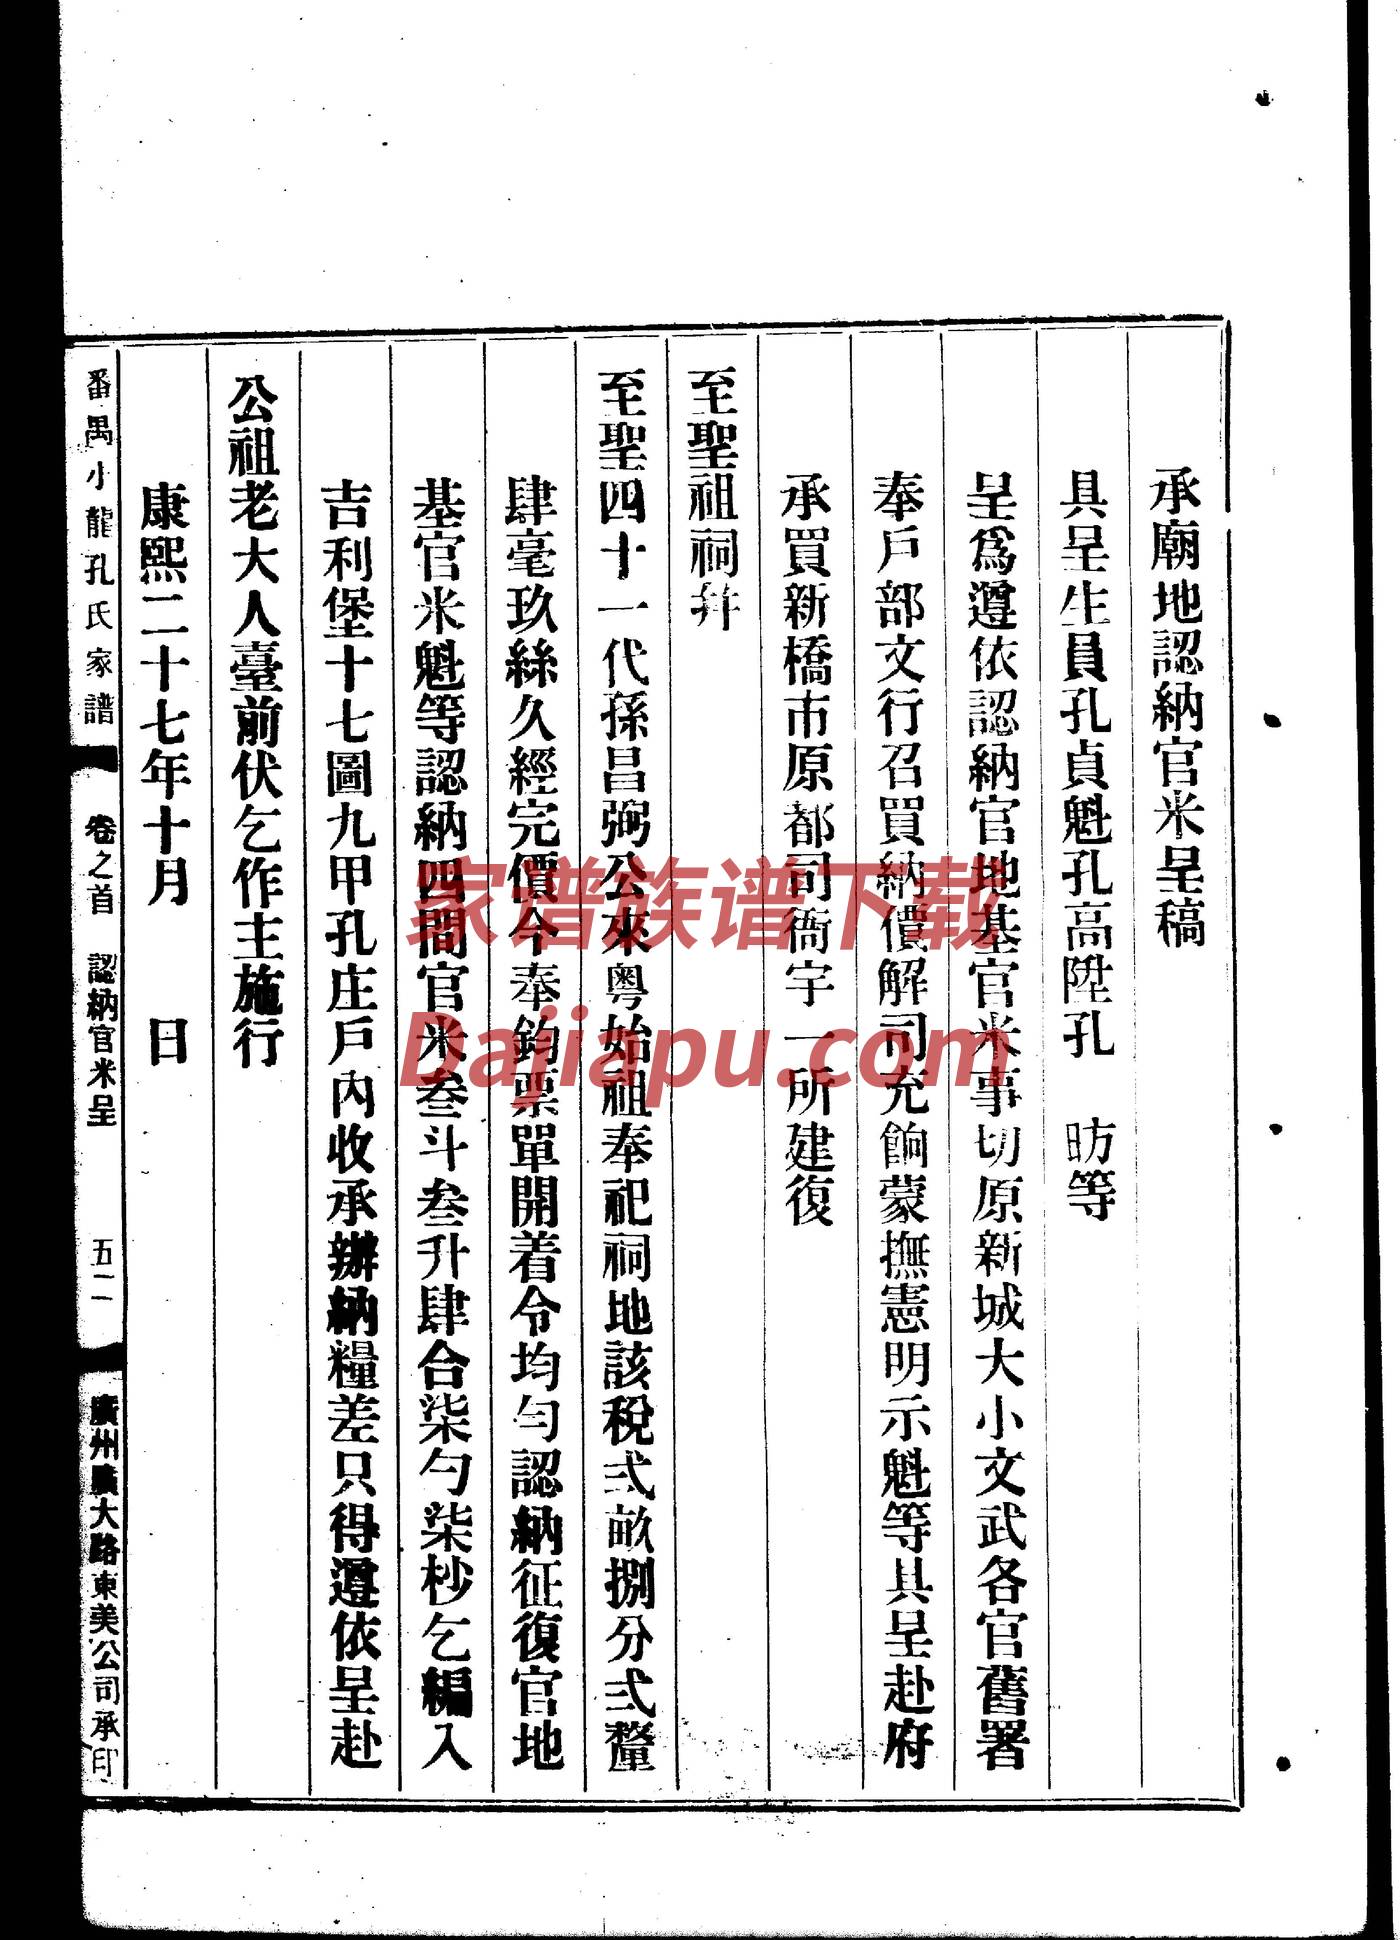 承廟地認納官米呈稿
具呈生員孔貞魁孔高陞孔　昉等
呈爲遵依認納官地基官米事切原新城大小文武各官舊署
奉戶部文行召買納價解司充餉蒙撫憲明示魁等具呈赴府
承買新橋市原都司衙宇一所建復
至聖祖祠幷
至聖四十一代孫昌弼公來粵始祖奉祀祠地該稅弍畝捌分弍釐
肆毫玖絲久經完價今奉鈞票單開着令均勻認納征復官地
基官米魁等認納四間官米叁斗叁升肆合柒勺柒杪乞編入
吉利堡十七圖九甲孔庄戶內收承辦納糧差只得遵依呈赴
公祖老大人臺前伏乞作主施行
康熙二十七年十月　　日
番禺小龍孔氏家譜　卷之首　認納官米呈　五二　廣州廣大路東美公司承印
家谱族谱下载
Dajiapu.com